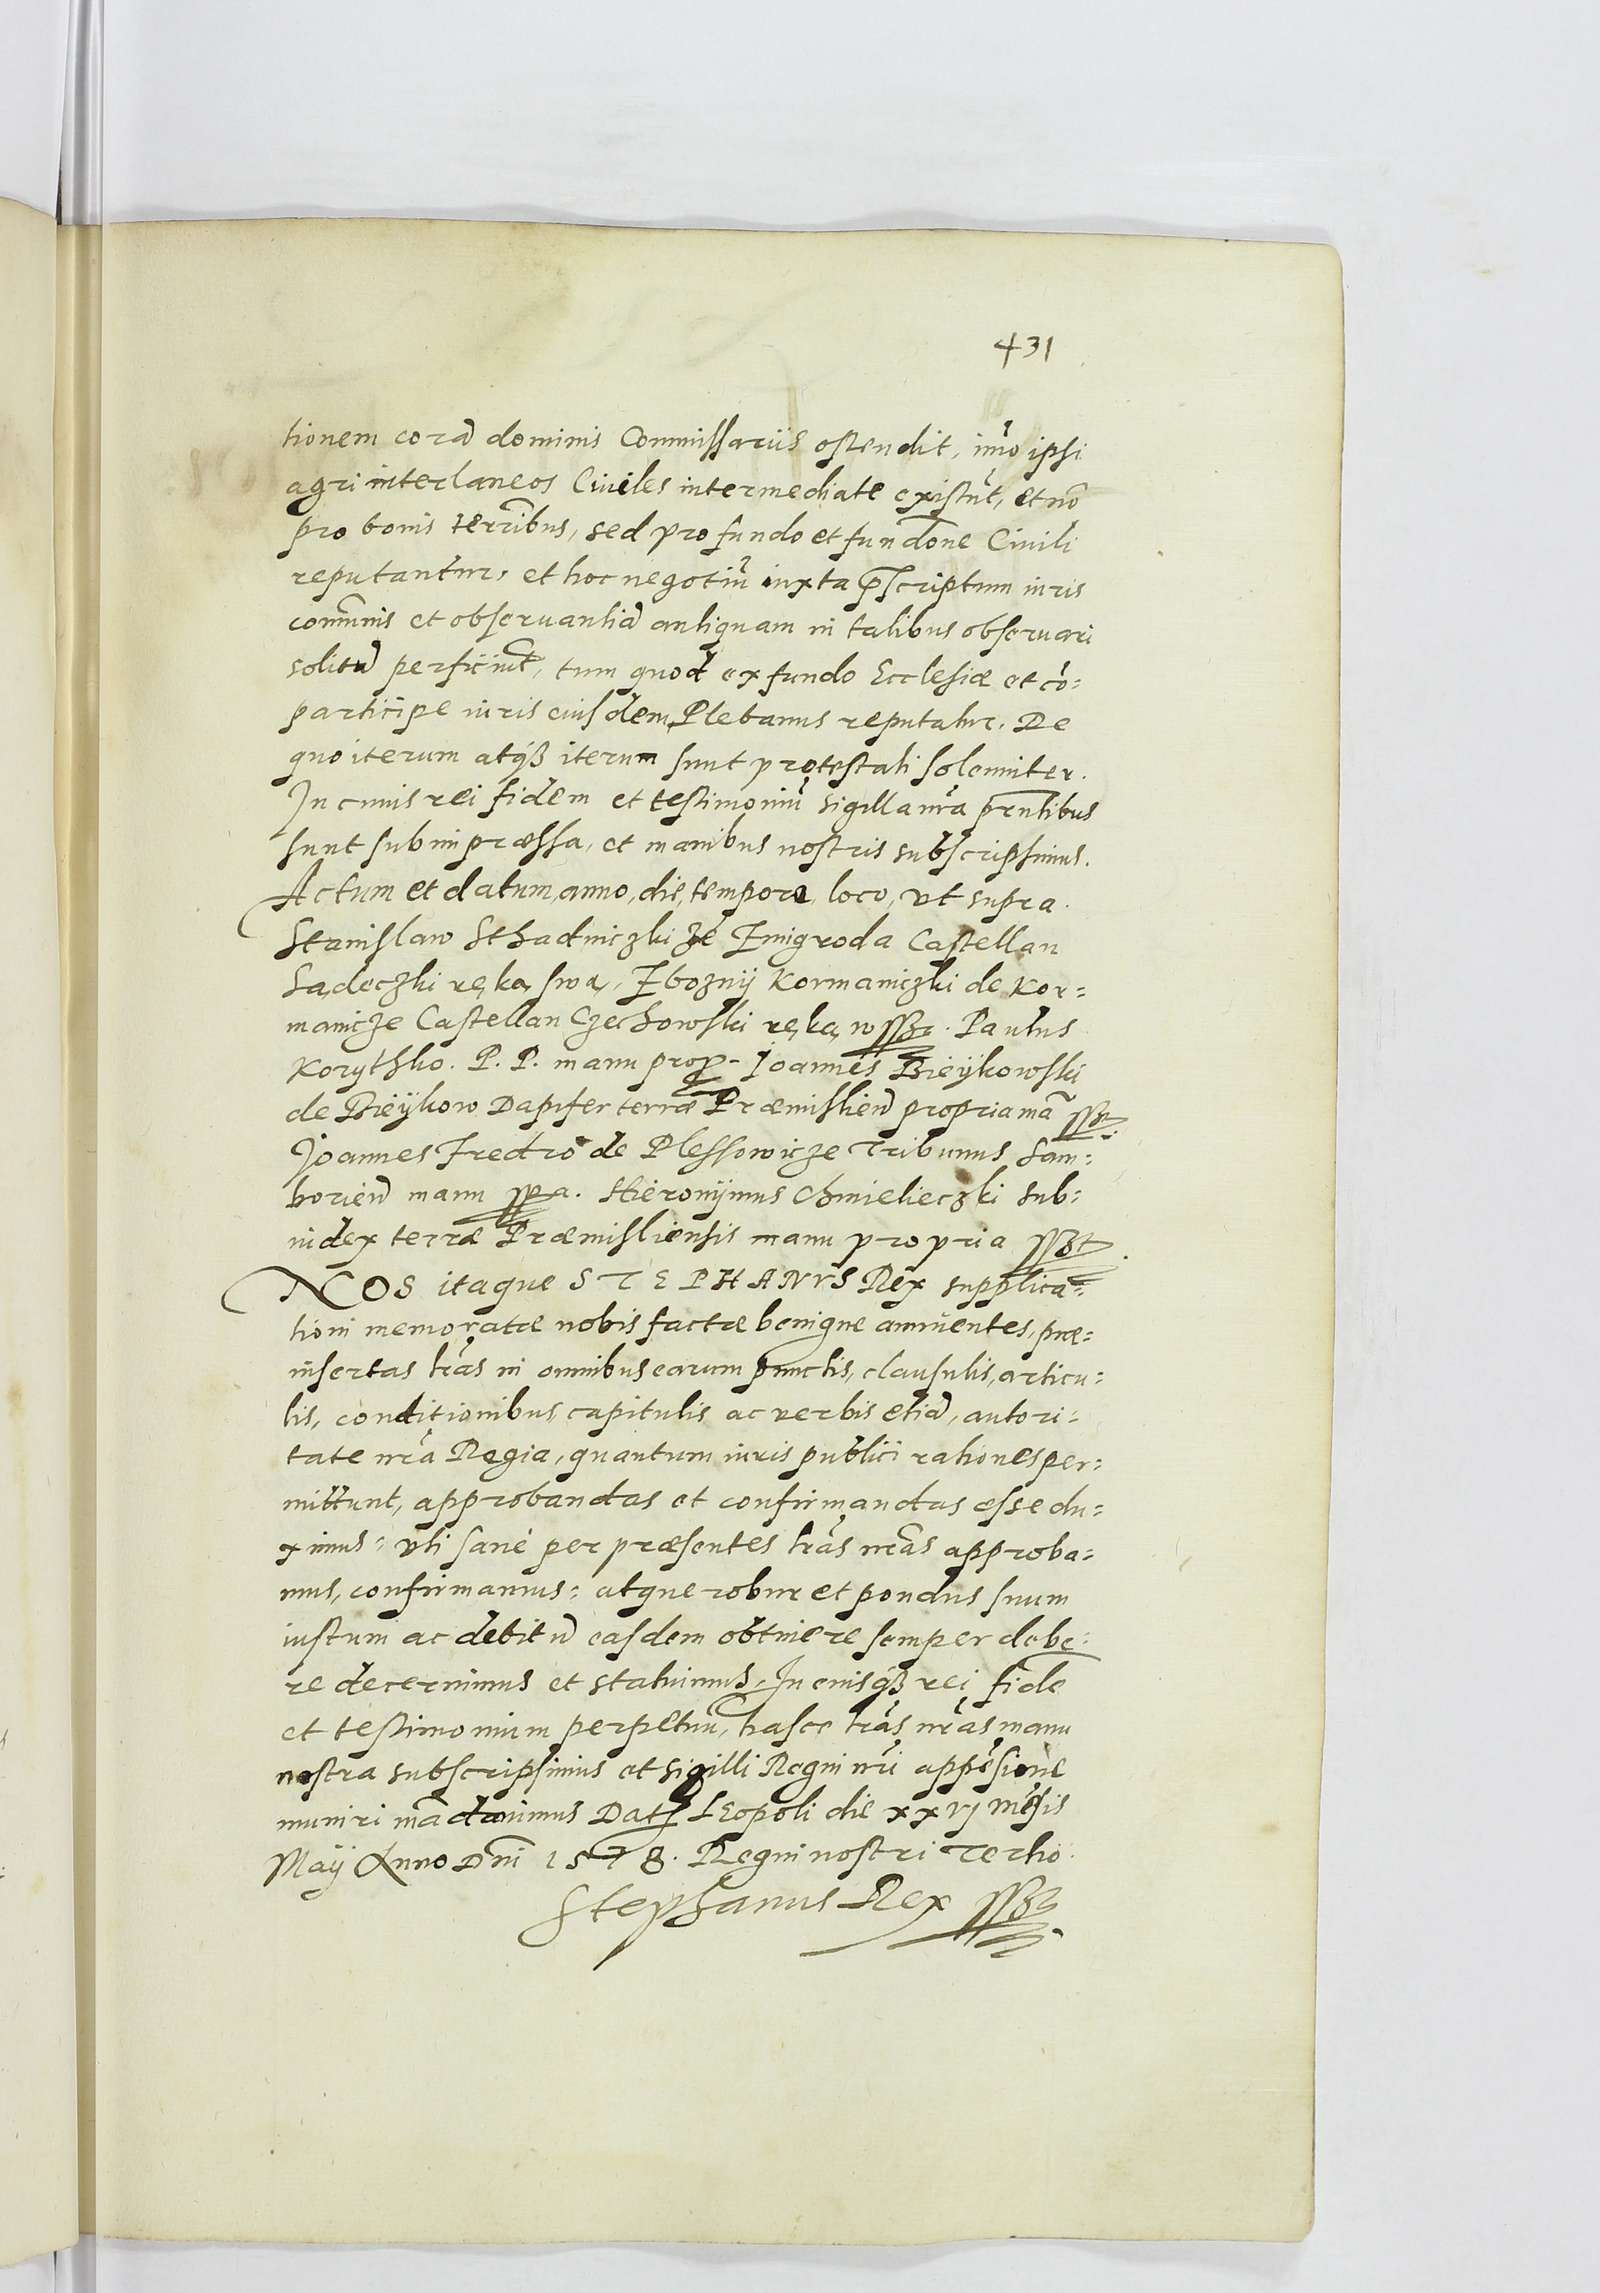 431
tionem corā dominis Commissariis ostendit, im̄o ipsi
agri inter laneos Ciuiles intermediate existūt, et nō
pro bonis terrībus, sed pro fundo et fundōne Ciuili
reputantur, et hoc negotiū iuxta p̄scriptum iuris
com̄unis et obseruantiā antiquam in talibus obseruari
solitā perficiūt, tum quod ex fundo Ecclesiæ et cō=
participe iuris eiusdem, Plebanus reputatur. De
quo iterum atqȝ iterum sunt protestati solenniter.
In cuius rei fidem et testimoniū sigilla nr̄a pr̄ntibus
sunt subimpræssa, et manibus nostris subscripsimus.
Actum et datum, anno, die, tempore, loco, vt supra.
Stanislaw Sthadniczki zé Zmigroda Castellan
Sądeczki ręką swą, Zbozny Kormaniczki de Kor=
manicze Castellan Czechowski ręką w ssȝt. Paulus
Korythko. P. P. manu prop. Joannes Bieykowski
de Bieykow Dapifer terræ Præmislień propria mā ssȝt
Joannes Fredro de Plessowicze Tribunus Sam=
borień manu ppa. Hieronymus Chmielieczki sub=
iudex terræ Præmisliensis manu propria ssȝt
NOS itaque STEPHANVS Rex supplica=
tioni memoratæ nobis factæ benigne annuentes, præ=
insertas lr̄as in omnibus earum punctis, clausulis, articu=
lis, conditionibus, capitulis ac verbis etiā, autori=
tate nr̄a Regia, quantum iuris publici rationes per=
mittunt, approbandas et confirmandas esse du=
ximus: vti sané per præsentes lr̄as nr̄as approba=
mus, confirmamus: atque robur et pondus suum
iustum ac debitū easdem obtinere semper debe=
re decernimus et statuimus. In cuius qȝ rei fidē
et testimonium perpetuū, hasce lr̄as nr̄as manu
nostra subscripsimus et sigilli Regni nr̄i appēsione
muniri mādauimus Dat Leopoli die xxvj mēsis
Maij Anno Dn̄i 1578. Regni nostri Tertio.
Stephanus Rex ssȝt